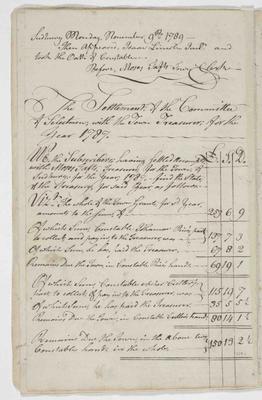 Sudbury Monday, November 9th, 1789
Then appeared, Isaac Lincoln Junr. and
took the Oath of Constable
Before, Moses Taft Town Clerk
The Settlement of the Committee
of Selectmen, with the Town Treasurer, for the
Year 1787.
We the Subscribers, having settled Accounts £. S. D.
with Moses Taft, Treasurer, for the Town of
for the Year, 1787. find the State
of the Treasury, for said Year as follows.
Viz. The whole of the Town Grant for sd. Year,
amounts to the sum of 287 6 9
Of which Sum, Constable
to collect and pay in to the Treasurer, was 137 7 3
Of which Sum, he has paid the Treasurer 67 8 2
Remains due the Town, in Constable hands 69 19 1
Of which Sum, Constable
to collect & pay in to the Treasurer, was 115 19 7
Of which Sum, he has paid the Treasurer 35 5 5½
Remains due the Town, in Constable hands 80 14 1½
Remains Due the Town, in the above two
Constables hands, in the whole 150 13 2½